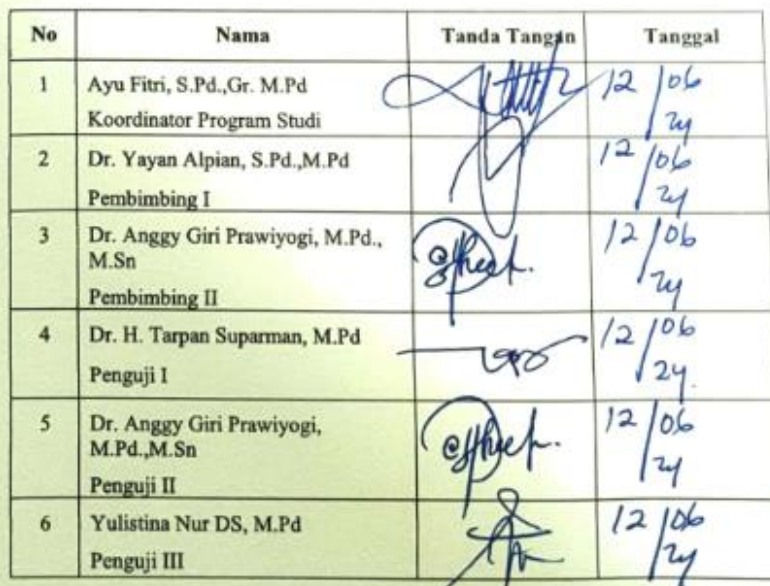 No Nama Tanda Tangan Tanggal
1 Ayu Fitri, S.Pd.,Gr. M.Pd 12/06
Koordinator Program Studi 24
2 Dr. Yayan Alpian, S.Pd.,M.Pd 12/06
Pembimbing I 24
3 Dr. Anggy Giri Prawiyogi, M.Pd., 12/06
M.Sn
Pembimbing II 24
4 Dr. H. Tarpan Suparman, M.Pd 12/06
Penguji I 24
5 Dr. Anggy Giri Prawiyogi, 12/06
M.Pd.,M.Sn
Penguji II 24
6 Yulistina Nur DS, M.Pd 12/06
Penguji III 24